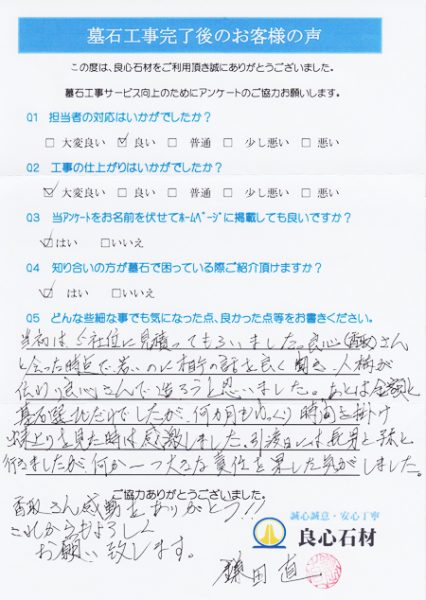 墓石工事完了後のお客様の声
この度は、良心石材をご利用頂き誠にありがとうございました。
墓石工事サービス向上のためにアンケートのご協力お願いします。
Q1 担当者の対応はいかがでしたか?
□ 大変良い ☑ 良い □ 普通 □ 少し悪い □ 悪い
Q2 工事の仕上がりはいかがでしたか?
☑ 大変良い □ 良い □ 普通 □ 少し悪い □ 悪い
Q3 当アンケートをお名前を伏せてホームページに掲載しても良いですか?
☑ はい □ いいえ
Q4 知り合いの方が墓石で困っている際ご紹介頂けますか?
☑ はい □ いいえ
Q5 どんな些細な事でも気になった点、良かった点等をお書きください。
当初は、5社位に見積ってもらいました。良心(香取)さん
と会った時点で、若いのに相手の話を良く聞き、人柄が
伝わり良心さんで造ろうと思いました。あとは金額と
墓石選びだけでしたが、何カ月もゆっくり時間を掛け
出来上りを見た時は感激しました。引渡日には長男と一緒に
行きましたが、何か一つ大きな責任を果した気がしました。
ご協力ありがとうございました。
香取さん感動をありがとう!!
これからもよろしく
お願い致します。
誠心誠意・安心丁寧
良心石材
鎌田 直